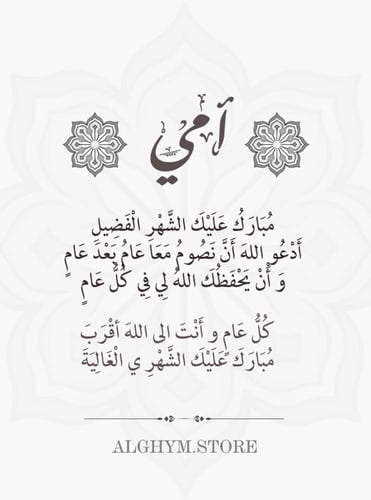 أمي
مُبَارَكُ عَلَيْكَ الشَّهْرِ الْفَضِيلِ
أَدْعُو اللهَ أَنَّ نَصُومُ مَعَا عَامُ بَعْدَ عَامٍ
وَ أَنْ يَحْفَظُكَ اللهُ لِي فِي كُلُّ عَامٍ
كُلُّ عَامٍ و أَنْتَ الى اللهَ أقْرَبَ
مُبَارَكٍ عَلَيْكَ الشَّهْرِ ي الْغَالِيَةَ
ALGHYM.STORE